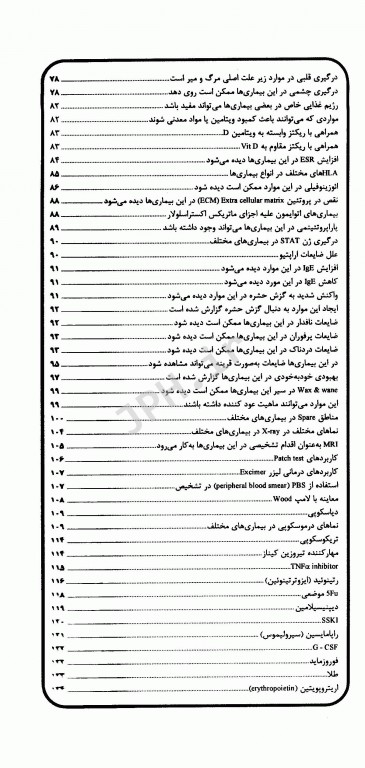 درگیری قلبی در موارد زیر علت اصلی مرگ و میر است ۷۸
درگیری چشمی در این بیماری‌ها ممکن است روی دهد ۷۸
رژیم غذایی خاص در بعضی بیماری‌ها می‌تواند مفید باشد ۸۲
مواردی که می‌توانند باعث کمبود ویتامین یا مواد معدنی شوند ۸۲
همراهی با ریکتز وابسته به ویتامین D ۸۳
همراهی با ریکتز مقاوم به Vit D ۸۳
افزایش ESR در این بیماری‌ها دیده می‌شود ۸۴
HLAهای مختلف در انواع بیماری‌ها ۸۵
ائوزینوفیلی در این موارد ممکن است دیده شود ۸۶
نقص در پروتئین Extra cellular matrix (ECM) در این بیماری‌ها دیده می‌شود ۸۸
بیماری‌های اتوایمون علیه اجزای ماتریکس اکستراسلولار ۸۸
پاراپروتئینمی در این بیماری‌ها می‌تواند وجود داشته باشد ۸۹
درگیری ژن STAT در بیماری‌های مختلف ۹۰
علل ضایعات اراپتیو ۹۰
افزایش IgE در این موارد دیده می‌شود ۹۱
کاهش IgE در این مورد دیده می‌شود ۹۱
واکنش شدید به گزش حشره در این موارد دیده می‌شود ۹۱
ایجاد این موارد به دنبال گزش حشره گزارش شده است ۹۲
ضایعات نافدار در این بیماری‌ها ممکن است دیده شود ۹۲
ضایعات پرفوران در این بیماری‌ها ممکن است دیده شود ۹۳
ضایعات دردناک در این بیماری‌ها ممکن است دیده شود ۹۳
در این بیماری‌ها ضایعات به‌صورت قرینه می‌تواند مشاهده شود ۹۵
بهبودی خودبه‌خودی در این بیماری‌ها گزارش شده است ۹۷
Wax & wane در سیر این بیماری‌ها ممکن است دیده شود ۹۹
این موارد می‌توانند ماهیت عود کننده داشته باشند ۹۹
مناطق Spare در بیماری‌های مختلف ۱۰۰
نماهای مختلف در X-ray در بیماری‌های مختلف ۱۰۴
MRI به‌عنوان اقدام تشخیصی در این بیماری‌ها به‌کار می‌رود ۱۰۵
کاربردهای Patch test ۱۰۶
کاربردهای درمانی لیزر Excimer ۱۰۷
استفاده از PBS (peripheral blood smear) در تشخیص ۱۰۷
معاینه با لامپ Wood ۱۰۸
دیاسکوپی ۱۰۹
نماهای درموسکوپی در بیماری‌های مختلف ۱۰۹
تریکوسکوپی ۱۱۴
مهارکننده تیروزین کیناز ۱۱۴
TNFα inhibitor ۱۱۵
رتینوئید (ایزوترتینوئین) ۱۱۶
5Fu موضعی ۱۱۸
دپنی‌سیلامین ۱۱۹
SSKI ۱۲۰
راپامایسین (سیرولیموس) ۱۲۱
G - CSF
فوروزماید
طلا
اریتروپویتین (erythropoietin)